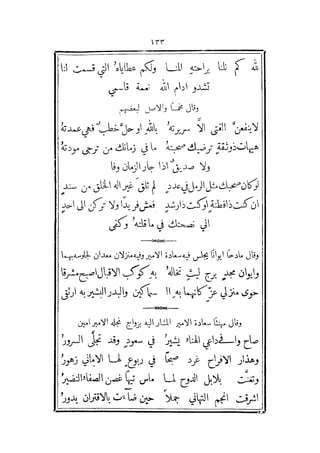 ١٣٣
لله كم نلنا براحته المنا ولكم عطاياه التي قسمت لنا
تشدو ادام الله نعمة قاسمي
وقال مخمسًا والاصل لبعضهم
لاينفعنَّ الفتى الاَّ سريرتهُ بالله او حلَّ خطب فهي عمدتهُ
هيهات ذو ثقةٍ ترضيك صحبتهُ ما في زمانك من ترجى مودتهُ
ولا صديقٌ اذا جار الزمان وفا
لوكان صحبك مثل الرمل في عددِ لم تلقَ غير اله الخلق من سندِ
ان كنت ذا فطنةٍ او كنت ذا رشدِ فعش فريدًا ولا تركن الى احدٍ
اني نصحتك في ما قلتهُ وكفى
وقال مادحًا ايوانًا يجلس فيه سعادة الامير وفيه منزلان معدان لجلوسه بهما
وايوان مجدٍ برج ليثٍ نخالهُ به كوكب الاقبال اصبح مشرقا
حوى منزلي عزٍّ كانهما به السماكين والبدر البشير به ارتقى
وقال مهنئًا سعادة الامير المشار اليه بزواج نجله الامير امين
صاح وافى داعي الهناء يشيرُ في سعودٍ وقد تجلَّى السرورُ
وهذار الافراح غرد صبحًا في ربوعٍ لها الاماني زهورُ
وتغنَّت بلابل الدوح لما ماس تيهًا غصن الصفاء النضيرُ
اشرقت انجم التهاني جملاً حين ضآءت بالاقتران بدورُ